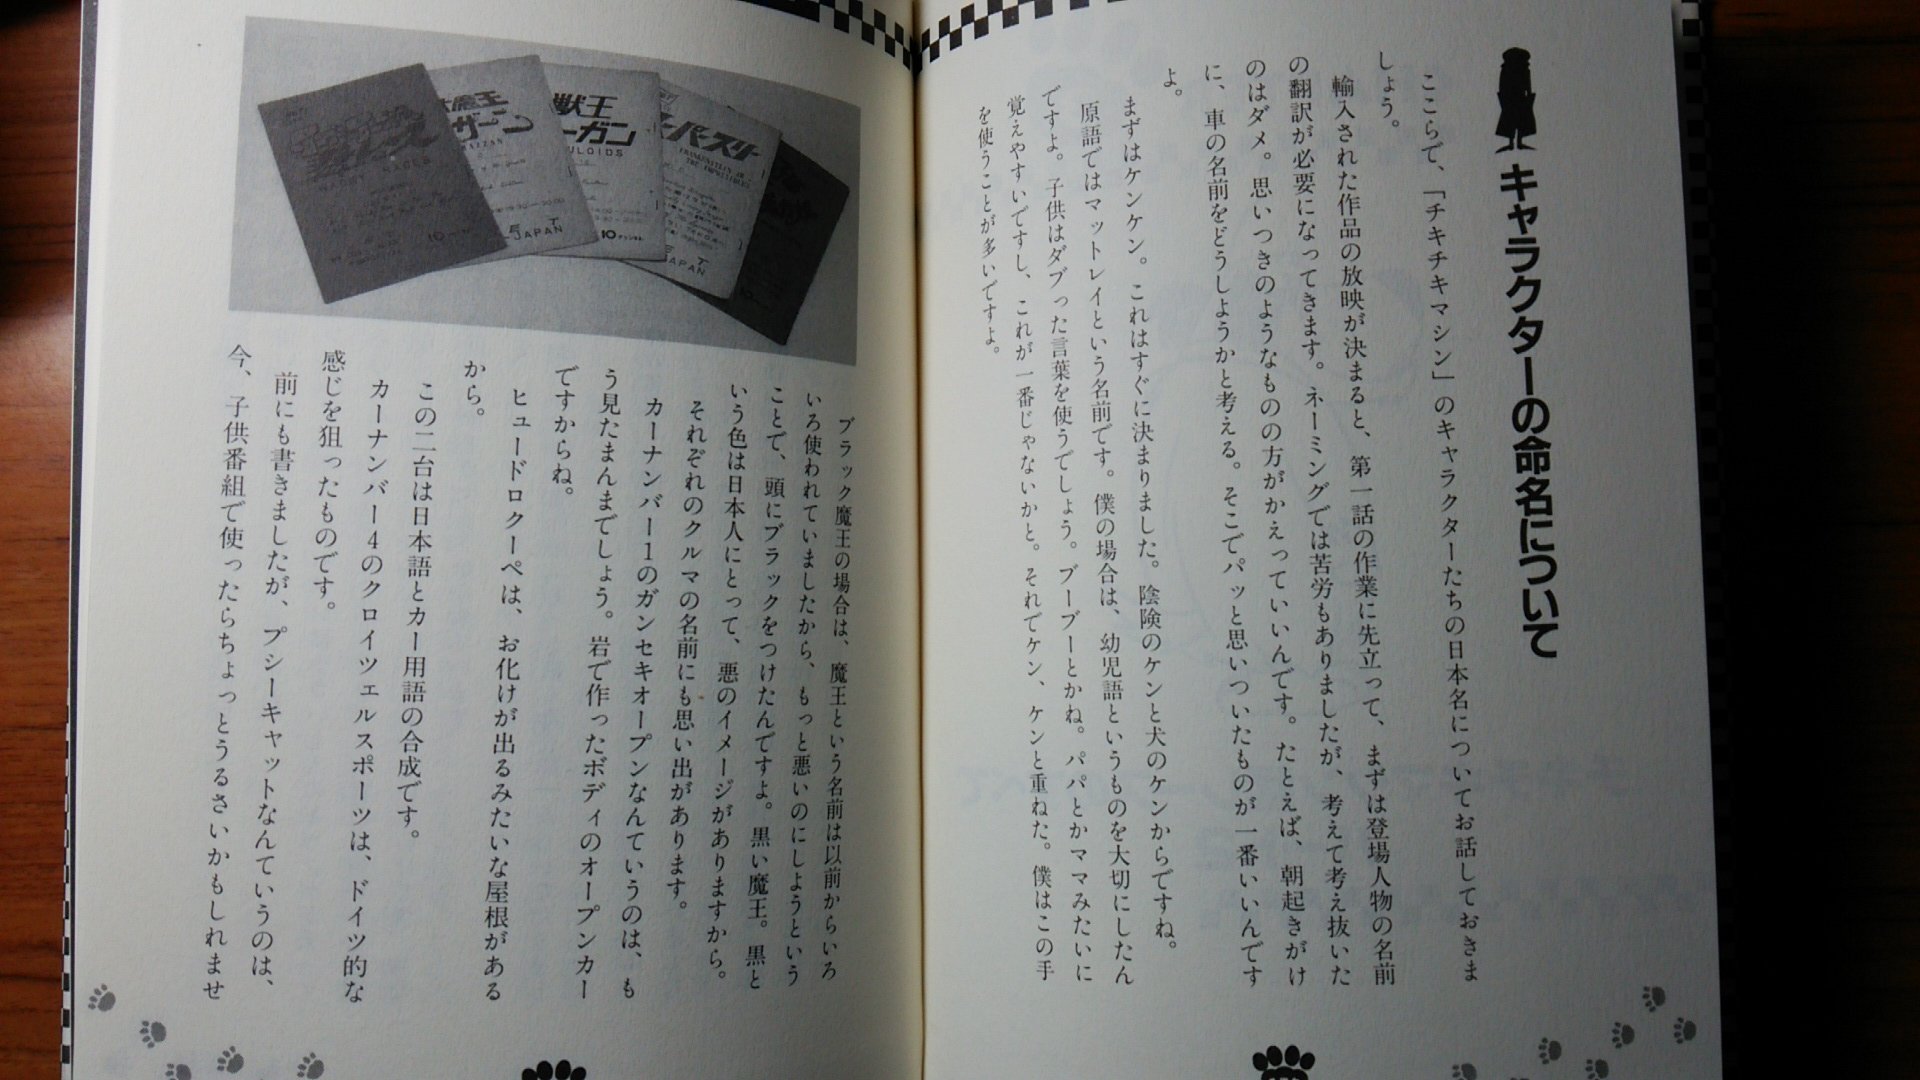 キャラクターの命名について
ここらで、「チキチキマシン」のキャラクターたちの日本名についてお話しておきま
しょう。
輸入された作品の放映が決まると、第一話の作業に先立って、まずは登場人物の名前
の翻訳が必要になってきます。ネーミングでは苦労もありましたが、考えて考え抜いた
のはダメ。思いつきのようなものの方がかえっていいんです。たとえば、朝起きがけ
に、車の名前をどうしようかと考える。そこでパッと思いついたものが一番いいんです
よ。
まずはケンケン。これはすぐに決まりました。陰険のケンと犬のケンからですね。
原語ではマットレイという名前です。僕の場合は、幼児語というものを大切にしたん
ですよ。子供はダブった言葉を使うでしょう。ブーブーとかね。パパとかママみたいに
覚えやすいですし、これが一番じゃないかと。それでケン、ケンと重ねた。僕はこの手
を使うことが多いですよ。
魔王
ザーン
獣王
ーガン
ULOIDS
ーパースリー
FRANKENSTEIN JR.
THE IMPOSSIBLES
WACKY RACES
JAPAN
10
JAPAN
10
ブラック魔王の場合は、魔王という名前は以前からいろ
いろ使われていましたから、もっと悪いのにしようという
ことで、頭にブラックをつけたんですよ。黒い魔王。黒と
いう色は日本人にとって、悪のイメージがありますから。
それぞれのクルマの名前にも思い出があります。
カーナンバー1のガンセキオープンなんていうのは、も
う見たまんまでしょう。岩で作ったボディのオープンカー
ですからね。
ヒュードロクーペは、お化けが出るみたいな屋根がある
から。
この二台は日本語とカー用語の合成です。
カーナンバー4のクロイツェルスポーツは、ドイツ的な
感じを狙ったものです。
前にも書きましたが、プシーキャットなんていうのは、
今、子供番組で使ったらちょっとうるさいかもしれませ